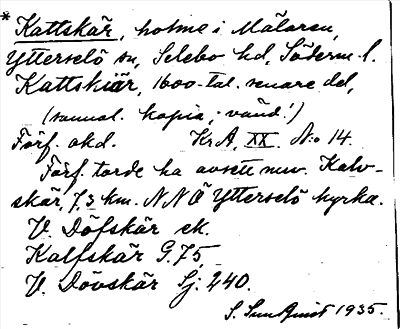 * Kattskär, holme i Mälaren,
Ytterselö sn, Selebo hd, Söderm. l.
Kattskiär, 1600-tal. senare del,
(samual. kopia, vänd!)
Förf. okd. KrA, XX. N:o 14.
Förf. torde ha avsett nuv. Kalv-
skär, 7,3 km. NNÖ Ytterselö kyrka.
V. Döfskär ek.
Kalfskär G. 75,
V. Dövskär Sj: 240.
S. Sundquist 1935.